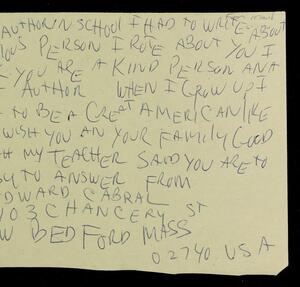 AUTHOR IN SCHOOL I HAD TO WRITE ABOUT
OUS PERSON I ROTE ABOUT YOU I
YOU ARE A KIND PERSON AN A
AUTHOR WHEN I GROW UP I
TO BE A GREAT AMERICAN LIKE
WISH YOU AN YOUR FAMILY GOOD
H MY TEACHER SAID YOU ARE TO
SY TO ANSWER FROM
DWARD CABRAL
03 CHANCERY ST
W BEDFORD MASS
02740. USA